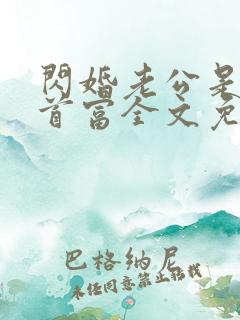 閃婚老公是
首富全文免
巴格納尼
未经同意禁止转载